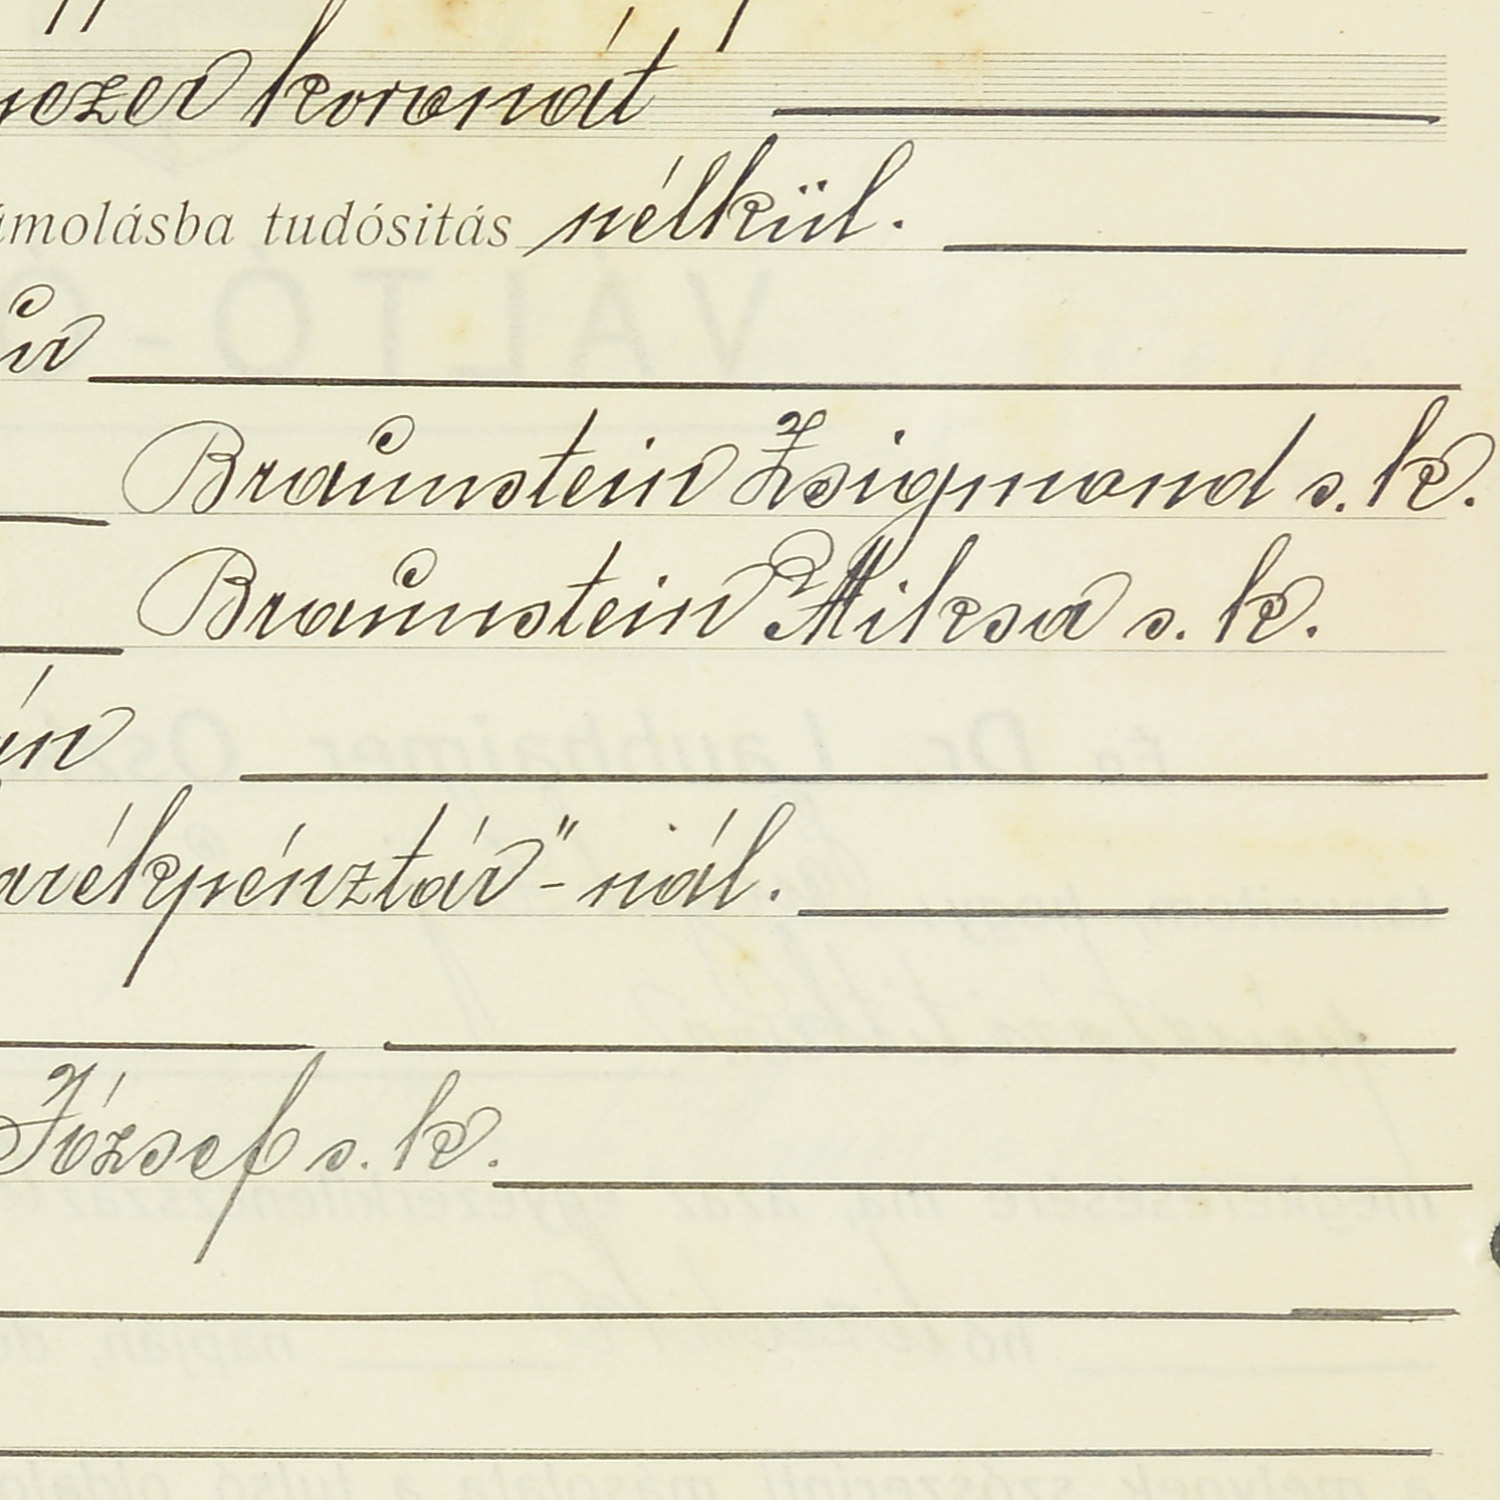 koronát
ámolásba tudósitás nélkül.
Braunstein Zsigmond s. k.
Braunstein Miksa s. k.
arékpénztár"-nál.
József s. k.